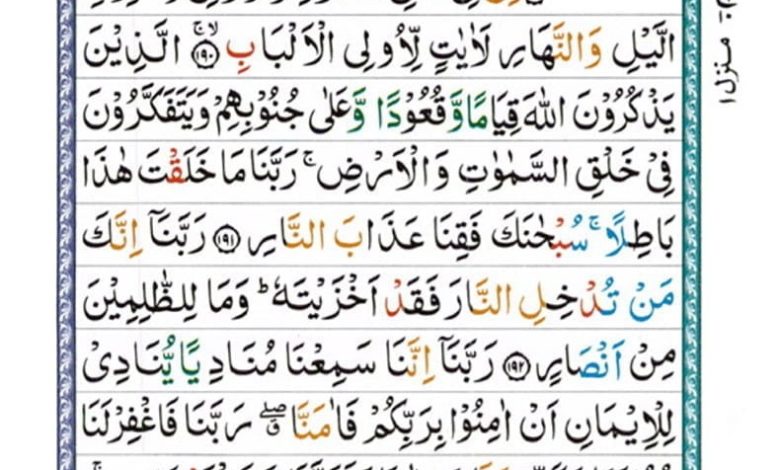 الَّيۡلِ وَالنَّهَارِ لَاٰيٰتٍ لِّاُولِى الۡاَلۡبَابِ ۚۙ ﴿۱۹۰﴾ الَّذِيۡنَ
يَذۡكُرُوۡنَ اللّٰهَ قِيَامًا وَّقُعُوۡدًا وَّعَلٰى جُنُوۡبِهِمۡ وَيَتَفَكَّرُوۡنَ
فِىۡ خَلۡقِ السَّمٰوٰتِ وَالۡاَرۡضِ ۚ رَبَّنَا مَا خَلَقۡتَ هٰذَا
بَاطِلًا ۚ سُبۡحٰنَكَ فَقِنَا عَذَابَ النَّارِ ﴿۱۹۱﴾ رَبَّنَاۤ اِنَّكَ
مَنۡ تُدۡخِلِ النَّارَ فَقَدۡ اَخۡزَيۡتَهٗ ؕ وَمَا لِلظّٰلِمِيۡنَ
مِنۡ اَنۡصَارٍ ﴿۱۹۲﴾ رَبَّنَاۤ اِنَّنَا سَمِعۡنَا مُنَادِيًا يُّنَادِىۡ
لِلۡاِيۡمَانِ اَنۡ اٰمِنُوۡا بِرَبِّكُمۡ فَاٰمَنَّا ۖۗ رَبَّنَا فَاغۡفِرۡ لَنَا
منزل ۱